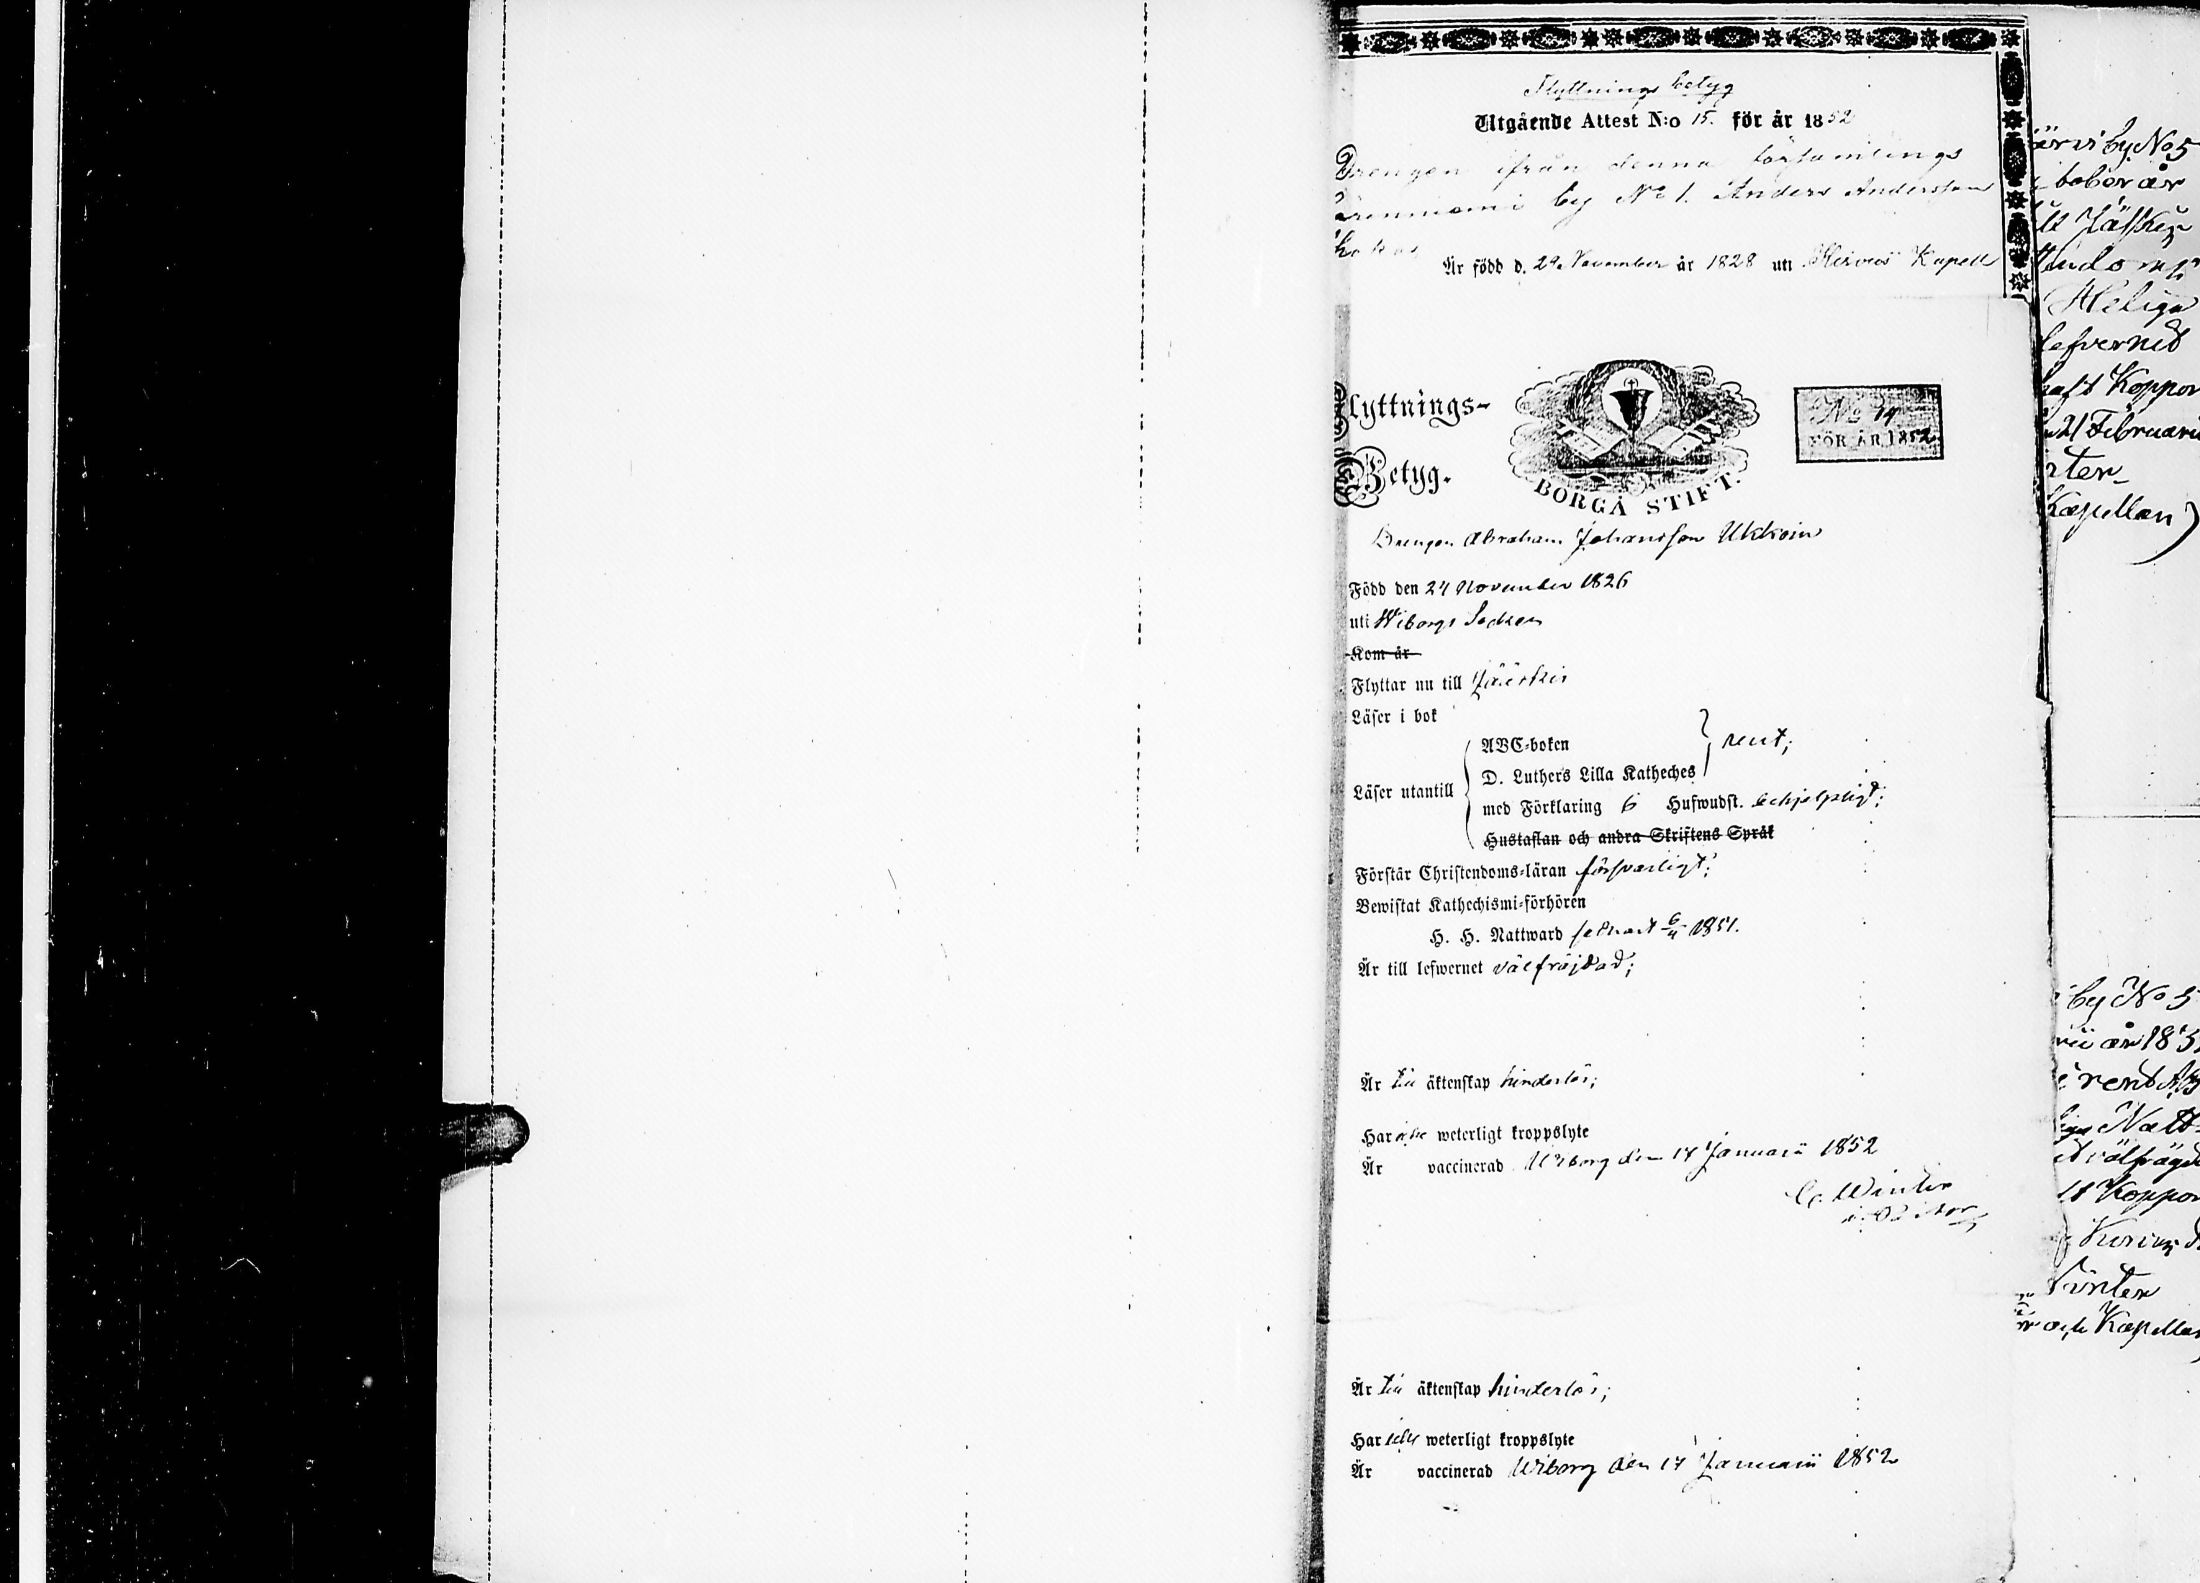 Flyttnings betyg
Utgående Attest N:o 15. för år 1852
Drengen ifrån denna församlings
by No 1. Anders Andersson
Är född d. 24 November år 1828 uti Kapell
Flyttnings-
Betyg.
BORGÅ STIFT.
No 14
FÖR ÅR 1852
Drengen Abraham Johansson Ukkoin
Född den 24 November 1826
uti Wiborgs Socken
Kom år
Flyttar nu till Jääskis
Läser i bok
ABC-boken
D. Luthers Lilla Katheches } rent;
Läser utantill
med Förklaring 6 Hufwudst. behjelpligt;
Hustaflan och andra Skriftens Språk
Förstår Christendoms-läran försvarligt;
Bewistat Kathechismi-förhören
H. H. Nattward senast 6/4 1851.
Är till lefwernet välfräjdad;
Är till äktenskap hinderlös;
Har icke weterligt kroppslyte
Är vaccinerad Wiborg den 17 Januarii 1852
C. Winter
Är till äktenskap hinderlös;
Har icke weterligt kroppslyte
Är vaccinerad Wiborg den 17 Januarii 1852
ärvi by No 5
Heliga
lefvernet
haft Koppor
21 Februarii
nter
Kapellan)
by No 5
år 185
rent
Natt-
Koppor
Winter
och Kapellan